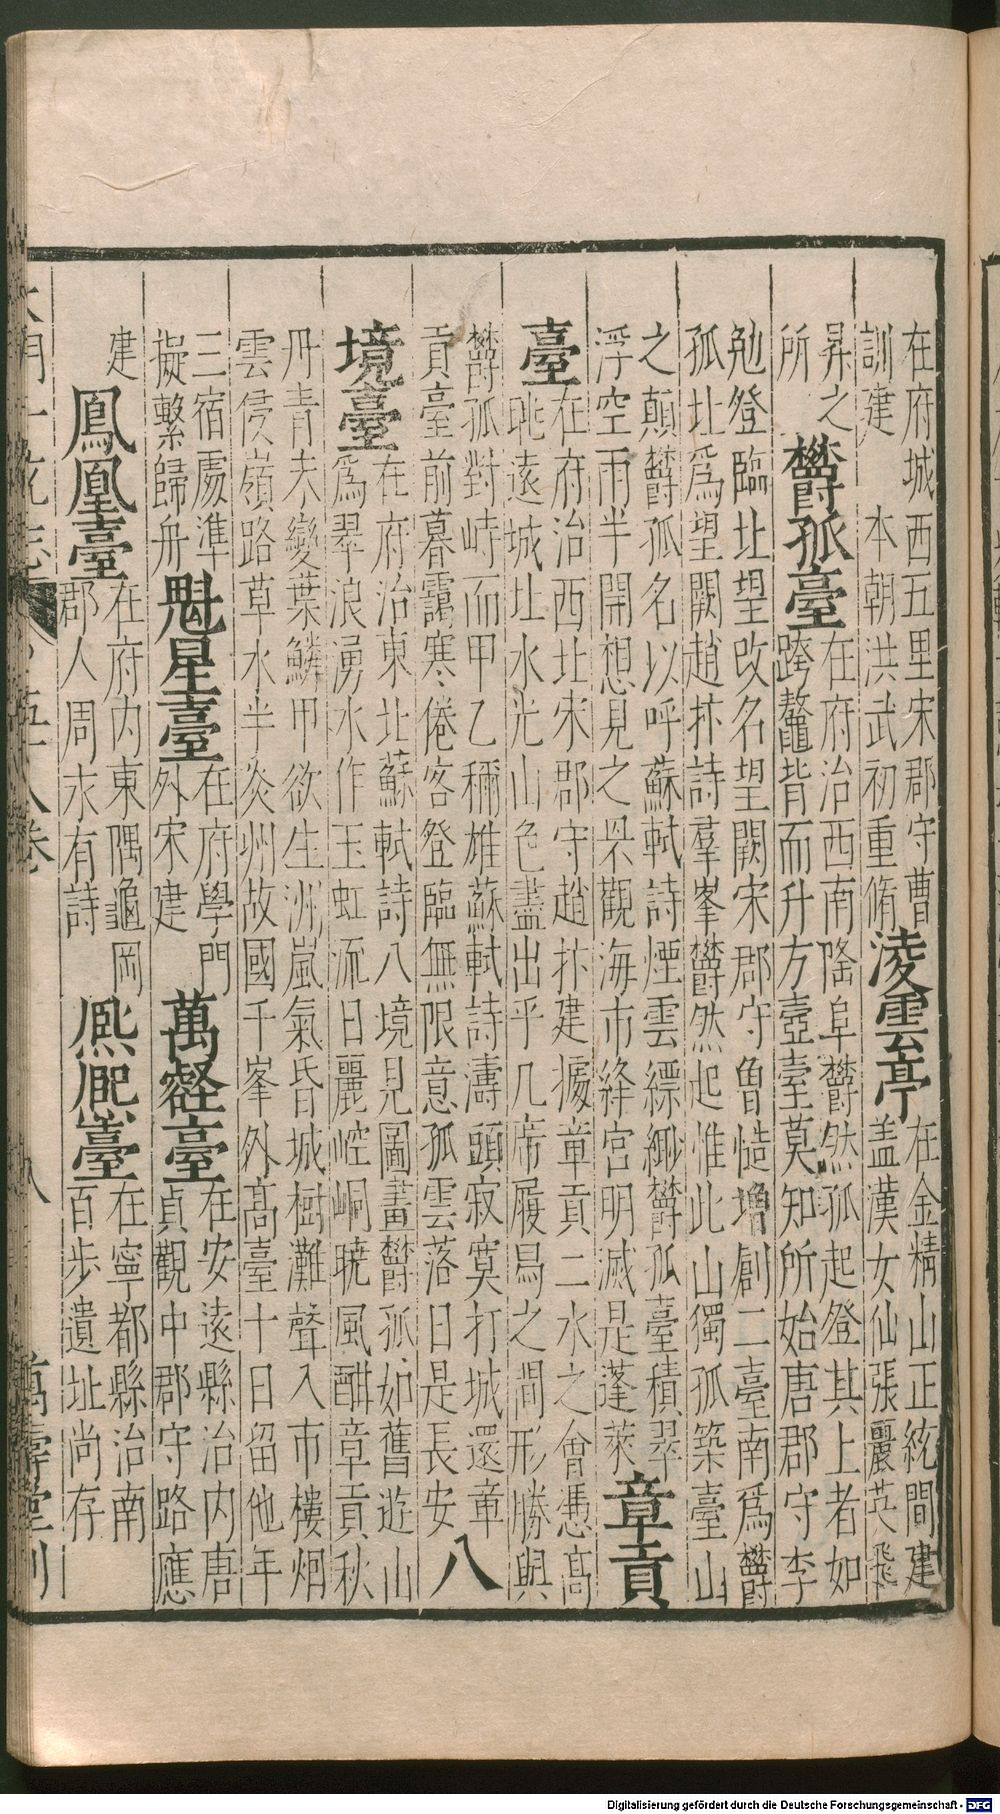 在府城西五里宋郡守曹
訓建　本朝洪武初重脩
凌雲亭
在金精山正統間建
盖漢女仙張麗英飛
昇之
所
欝孤臺
在府治西南隆阜欝然孤起登其上者如
跨鼇背而升方壺莫知所始唐郡守李
勉登臨北望改名望闕宋郡守曾慥增創二臺南爲欝
孤北爲望闕趙抃詩羣峯欝然起惟此山獨孤築臺山
之顛欝孤名以呼蘇軾詩煙雲縹緲欝孤臺積翠
浮空雨半開想見之罘觀海市絳宮明滅是蓬萊
章貢
臺
在府治西北宋郡守趙抃建據章貢二水之會憑高
眺遠城北水光山色盡出乎几席履舄之間形勝與
欝孤對峙而甲乙稱雄蘇軾詩濤頭寂寞打城還章
貢臺前暮靄寒倦客登臨無限意孤雲落日是長安
八
境臺
在府治東北蘇軾詩八境見圖畫欝孤如舊遊山
爲翠浪湧水作玉虹流日麗崆峒曉風酣章貢秋
丹青未變葉鱗甲欲生洲嵐氣昏城樹灘聲入市樓烟
雲侵嶺路草木半炎州故國千峯外髙臺十日留他年
三宿處準
擬繫歸舟
魁星臺
在府學門
外宋建
萬壑臺
在安遠縣治内唐
貞觀中郡守路應
建
鳳凰臺
在府内東隅龜岡
郡人周朮有詩
熈熈臺
在寧都縣治南
百步遺址尚存
大明一統志
五十八卷
八
萬壽堂刊
Digitalisierung gefördert durch die Deutsche Forschungsgemeinschaft - DFG